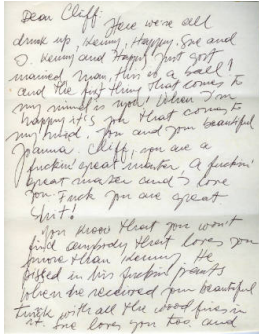 Dear Cliff:
Here we're all
drunk up, Kenny, Happy, Sue and
I. Kenny and Happy just got
married, man, this is a ball!
and the first thing that comes to
my mind is you! When I'm
happy it's you that comes to
my mind. You and your beautiful
Joanna. Cliff, you are a
fuckin' great master. A fuckin'
great master and I love
you. Fuck you are great
shit!
You know that you won't
find anybody that loves you
more than Kenny. He
pissed in his fuckin' pants
when he received your beautiful
trunk with all the wood fixes in
it. Sue loves you too, and